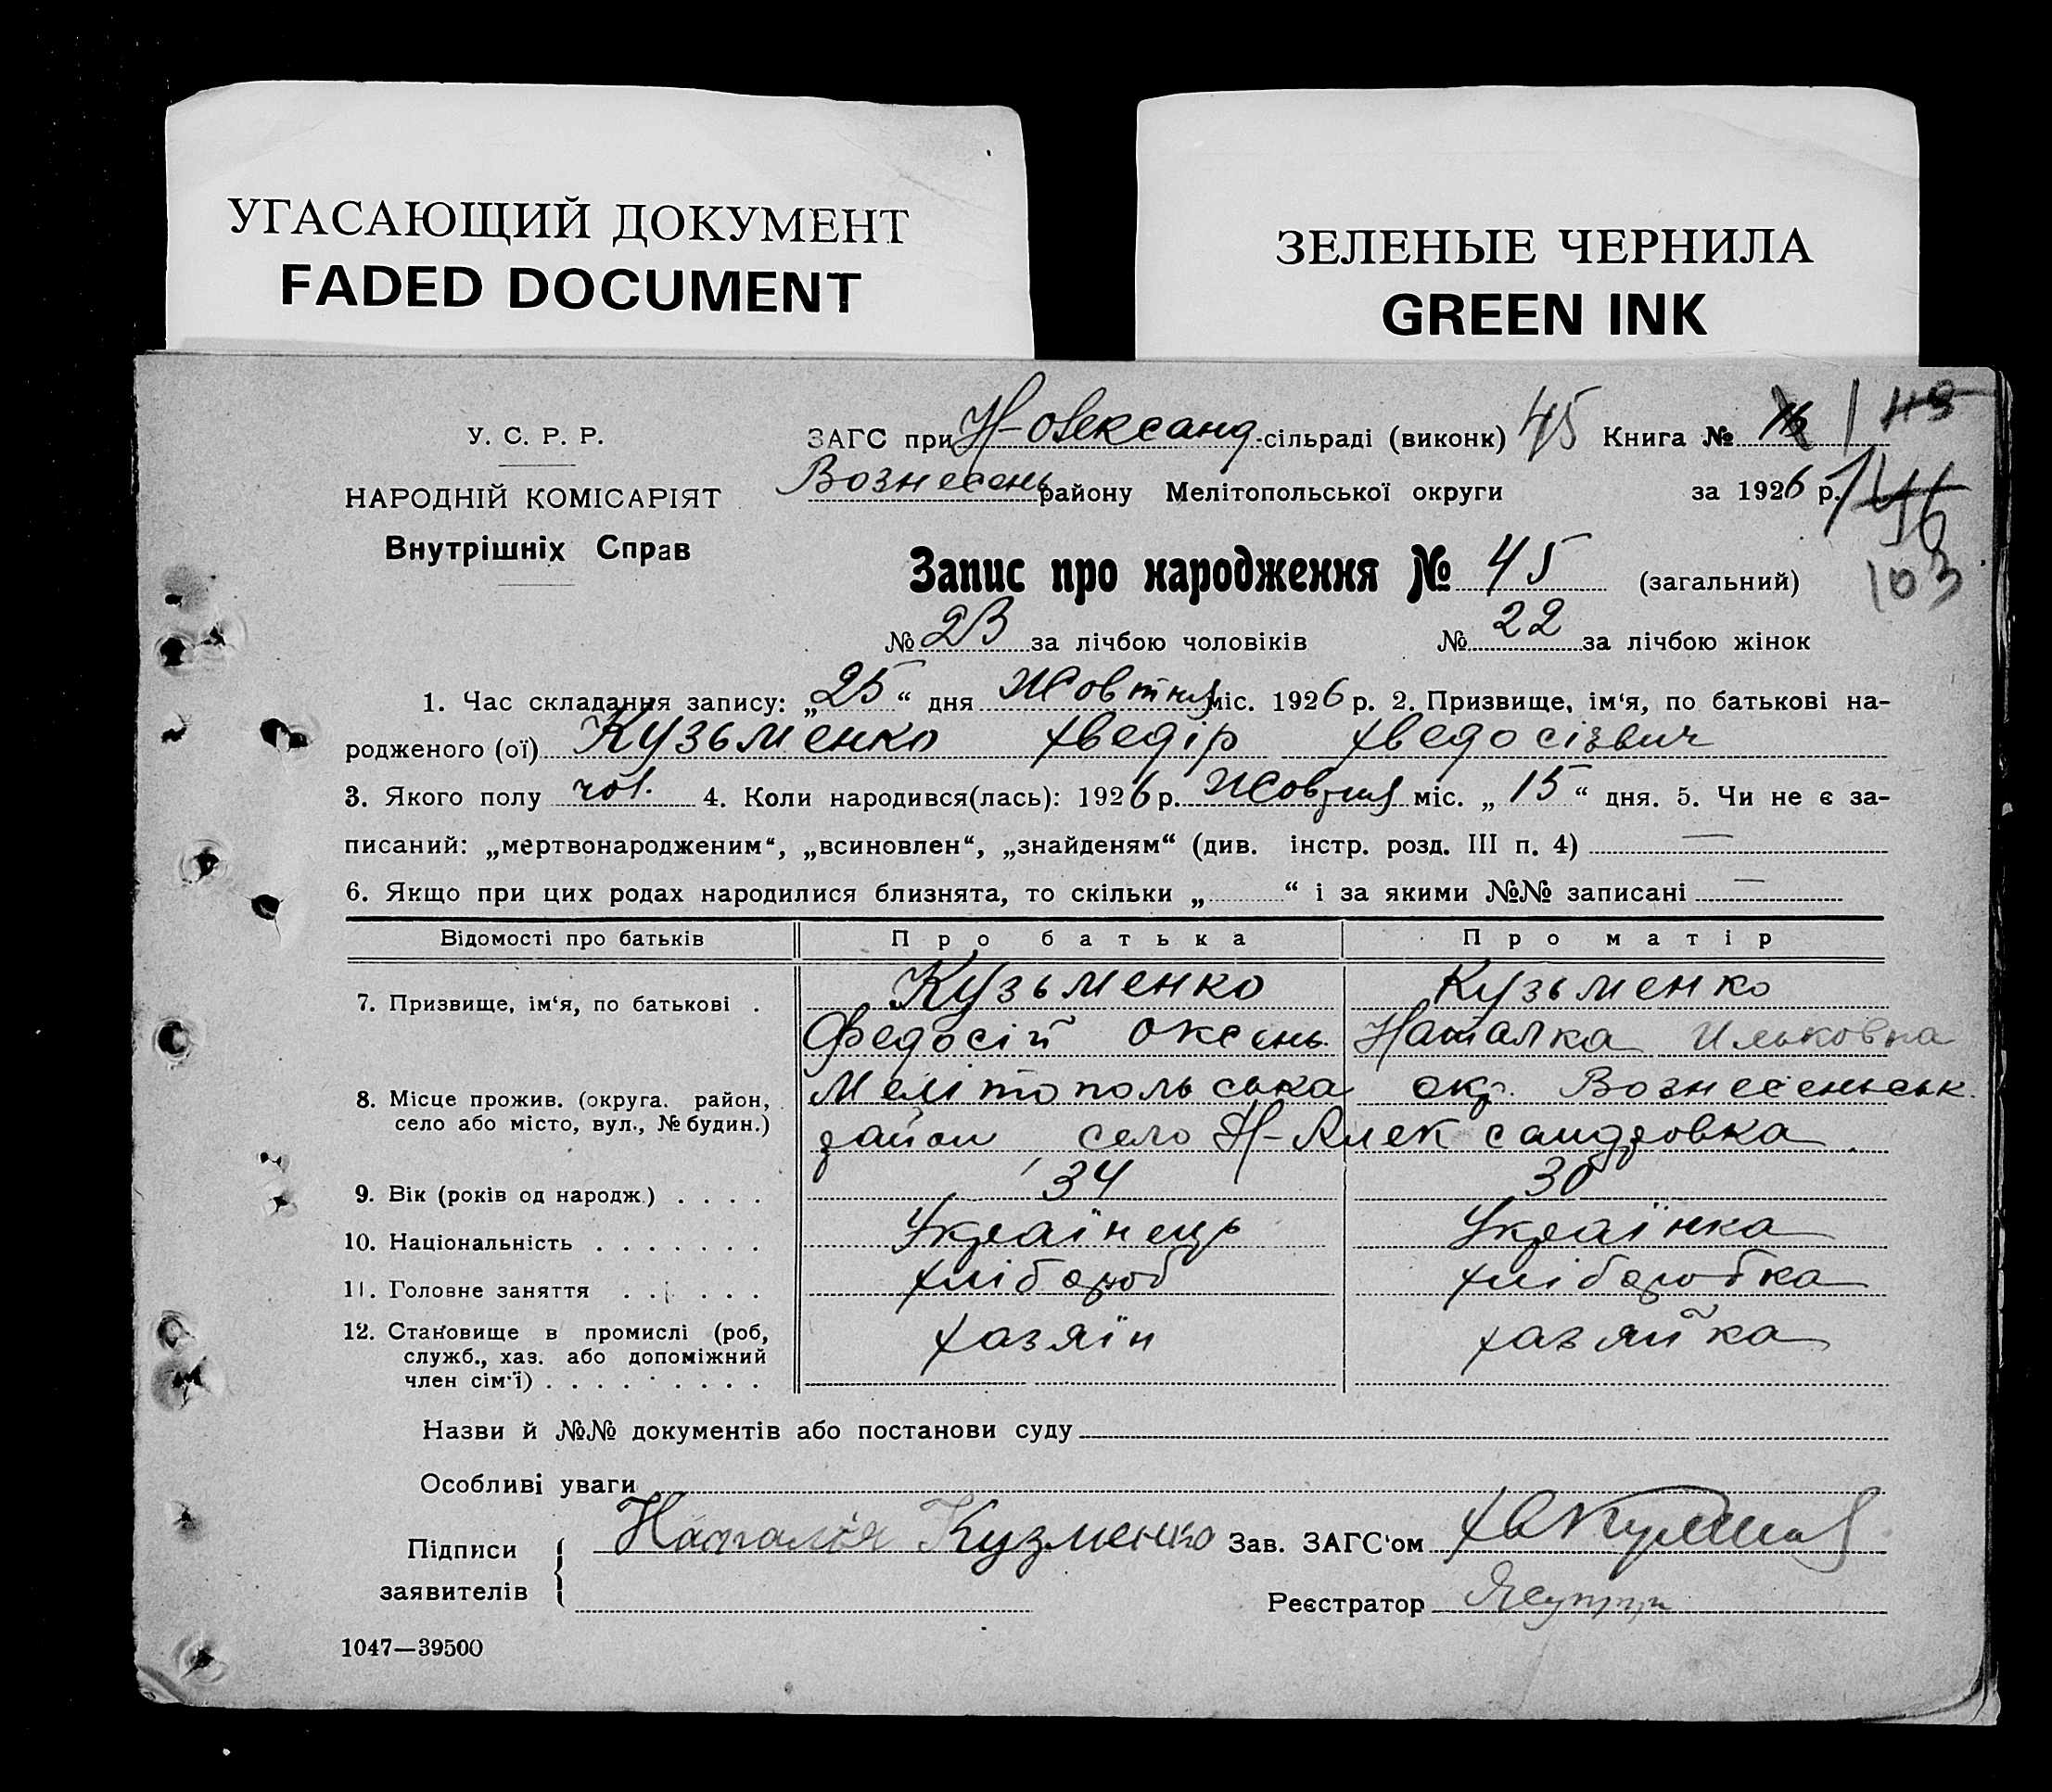 УГАСАЮЩИЙ ДОКУМЕНТ
FADED DOCUMENT
ЗЕЛЕНЫЕ ЧЕРНИЛА
GREEN INK
У. С. Р. Р.
НАРОДНІЙ КОМІСАРІЯТ
Внутрішніх Справ
ЗАГС при Н-Олександ. сільраді (виконк) 45 Книга № 1 45
Вознесень району Мелітопольської округи за 1926 р. 146
103
Запис про народження № 45 (загальний)
№ 23 за лічбою чоловіків № 22 за лічбою жінок
1. Час складання запису: „25“ дня Жовтня міс. 1926 р. 2. Призвище, ім‘я, по батькові на-
родженого (ої) Кузьменко Хведір Хведосієвич
3. Якого полу чол. 4. Коли народився(лась): 1926 р. Жовтня міс. „15“ дня. 5. Чи не є за-
писаний: „мертвонародженим“, „всиновлен“, „знайденям“ (див. інстр. розд. III п. 4) —
6. Якщо при цих родах народилися близнята, то скільки „ “ і за якими №№ записані —
Відомості про батьків Про батька Про матір
7. Призвище, ім‘я, по батькові . Кузьменко Кузьменко
Федосій Оксень. Наталка Ильковна
8. Місце прожив. (округа. район, село або місто, вул., № будин.) Мелітопольська окр. Вознесеньськ.
район село Н-Александровка
9. Вік (років од народж.) . . . . 34 30
10. Національність . . . . . . . Українець Українка
11. Головне заняття . . . . . хлібороб хліборобка
12. Становище в промислі (роб, хазяїн хазяйка
служб., хаз. або допоміжний
член сім‘ї) . . . . . . . . .
Назви й №№ документів або постанови суду
Особливі уваги
Підписи заявителів Наталія Кузменко Зав. ЗАГС‘ом
Реєстратор
1047—39500